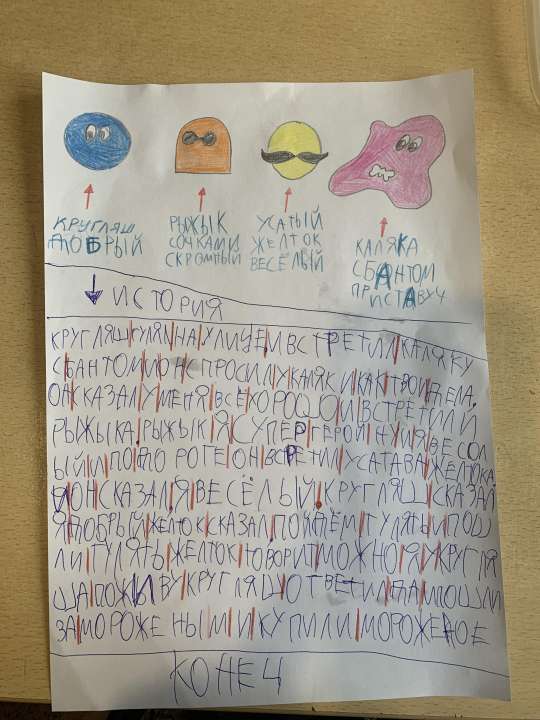 КРУГЛЯШ
ДОБРЫЙ
РЫЖЫК
СОЧКАМИ
СКРОМНЫЙ
УСАТЫЙ
ЖЕЛТОК
ВЕСЁЛЫЙ
КАЛЯКА
СБАНТОМ
ПРИСТАВУЧ
ИСТОРИЯ
КРУГЛЯШ ГУЛЯЛ НА УЛИЦЕ И ВСТРЕТИЛ КАЛЯКУ
СБАНТОМ И ОН СПРОСИЛ У КАЛЯКИ КАК ТВОИ ДЕЛА.
ОН СКАЗАЛ У МЕНЯ ВСЁ ХОРОШО И ВСТРЕТИЛИ
РЫЖЫКА. РЫЖЫК Я СУПЕР ГЕРОЙ НУ И Я ВЕСОЛ
ЫЙ И ПО ДОРОГЕ ОН ВСРЕТИЛ УСАТАВА ЖЕЛТОКА.
И ОН СКАЗАЛ Я ВЕСЁЛЫЙ. КРУГЛЯШ СКАЗАЛ
Я ДОБРЫЙ ЖЕЛТОК СКАЗАЛ ПОЙДЁМ ГУЛЯТЬ И ПОШ
ЛИ ГУЛЯТЬ ЖЕЛТОК ГОВОРИТ МОЖНО Я У КРУГЛЯ
ША ПОЖИВУ КРУГЛЯШ ОТВЕТИЛ ДА ПОШЛИ
ЗА МОРОЖЕНЫМ И КУПИЛИ МОРОЖЕНОЕ
КОНЕЦ